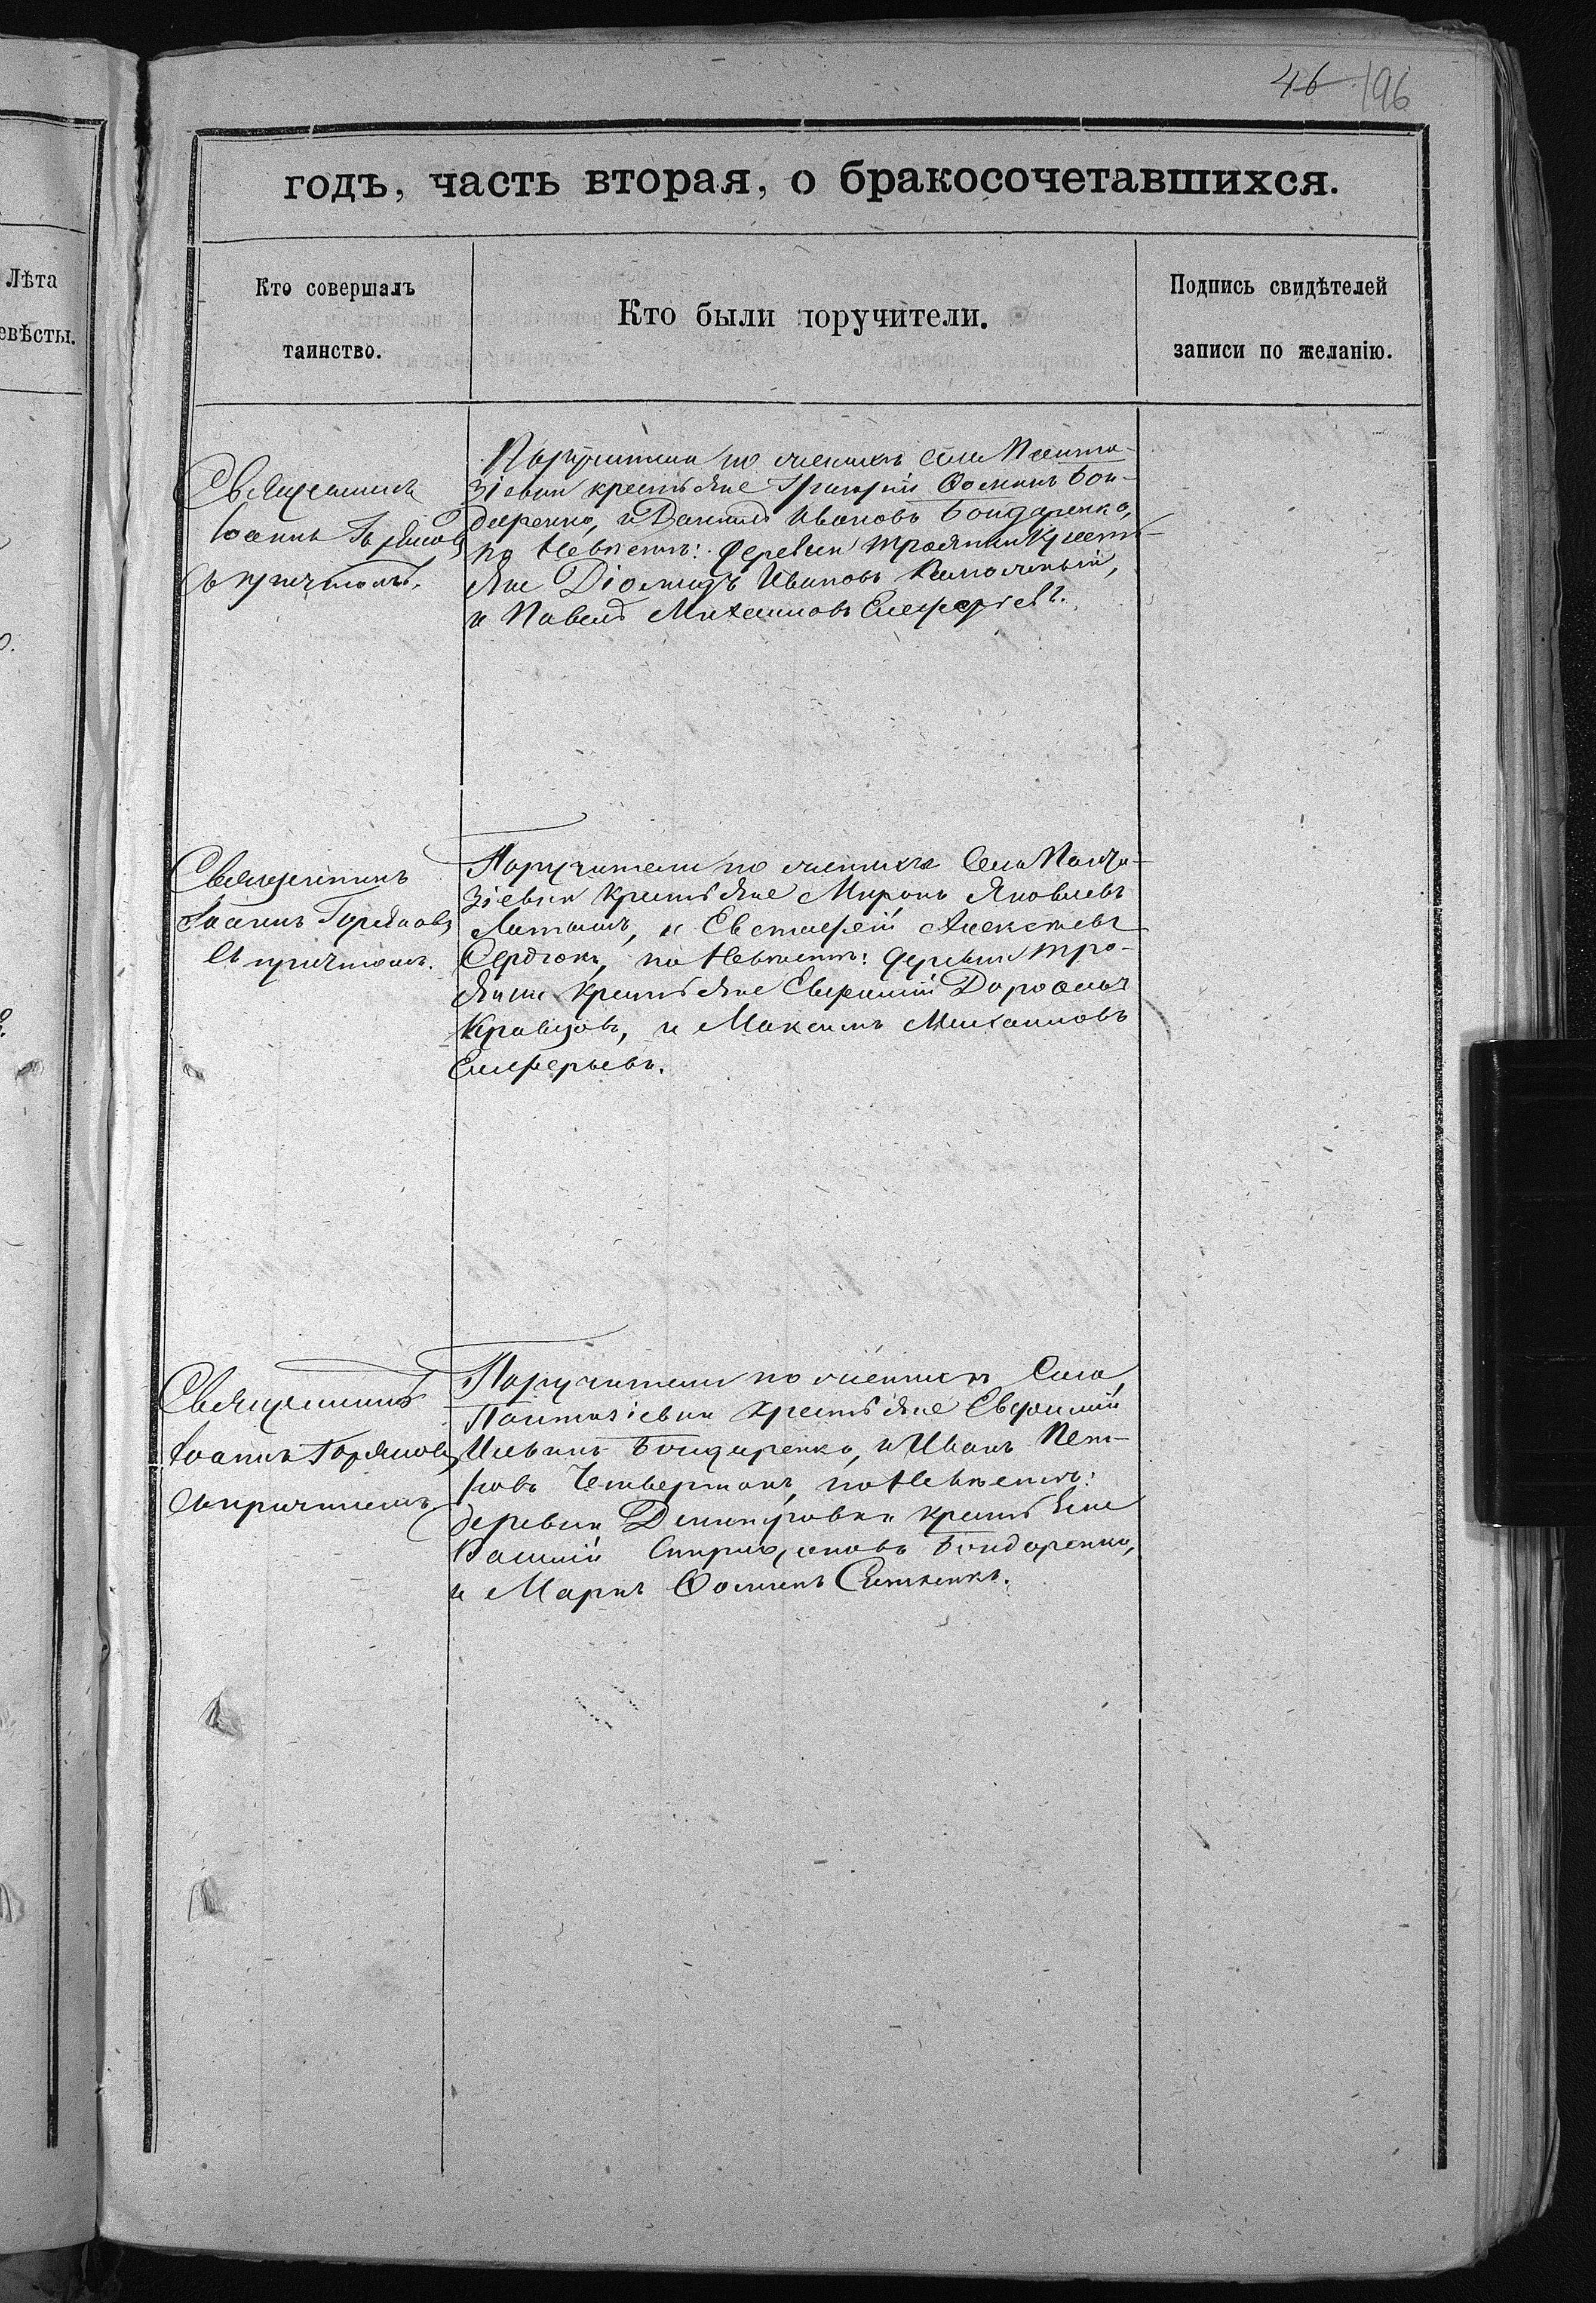 46 196
Лѣта
евѣсты.
годъ, часть вторая, о бракосочетавшихся.
Кто совершалъ
таинство.
Кто были поручители.
Подпись свидѣтелей
записи по желанію.
Священникъ
Іоаннъ Горяновъ
съ причтомъ.
Поручители по женихѣ села Панта-
зіевки крестьяне Григорій Ѳоминъ Бон-
даренко, и Даніилъ Ивановъ Бондаренко,
по Невѣстѣ: деревни Трояннки Крестья-
яне Діомидъ Ивановъ
и Павелъ Михаиловъ Елеферіевъ.
Священникъ
Іоаннъ Горяновъ
съ причтомъ.
Поручители по женихѣ Села Панта-
зіевки Крестьяне Миронъ Яковлевъ
и Евстафій Алексѣевъ
Сердюкъ, по Невѣстѣ: деревни Тро-
янки Крестьяне Евфимій Дороѳеевъ
Кравцовъ, и Максимъ Михаиловъ
Елеферьевъ.
Священникъ
Іоаннъ Горяновъ
съ причтомъ
Поручители по женихѣ Села
Пантазіевки Крестьяне Евфимій
Бондаренко, и Иванъ Пет-
ровъ Четвертакъ, по Невѣстѣ:
деревни Димитровки крестьяне
Василій Спиридоновъ Бондаренко,
и Маркъ Ѳоминъ